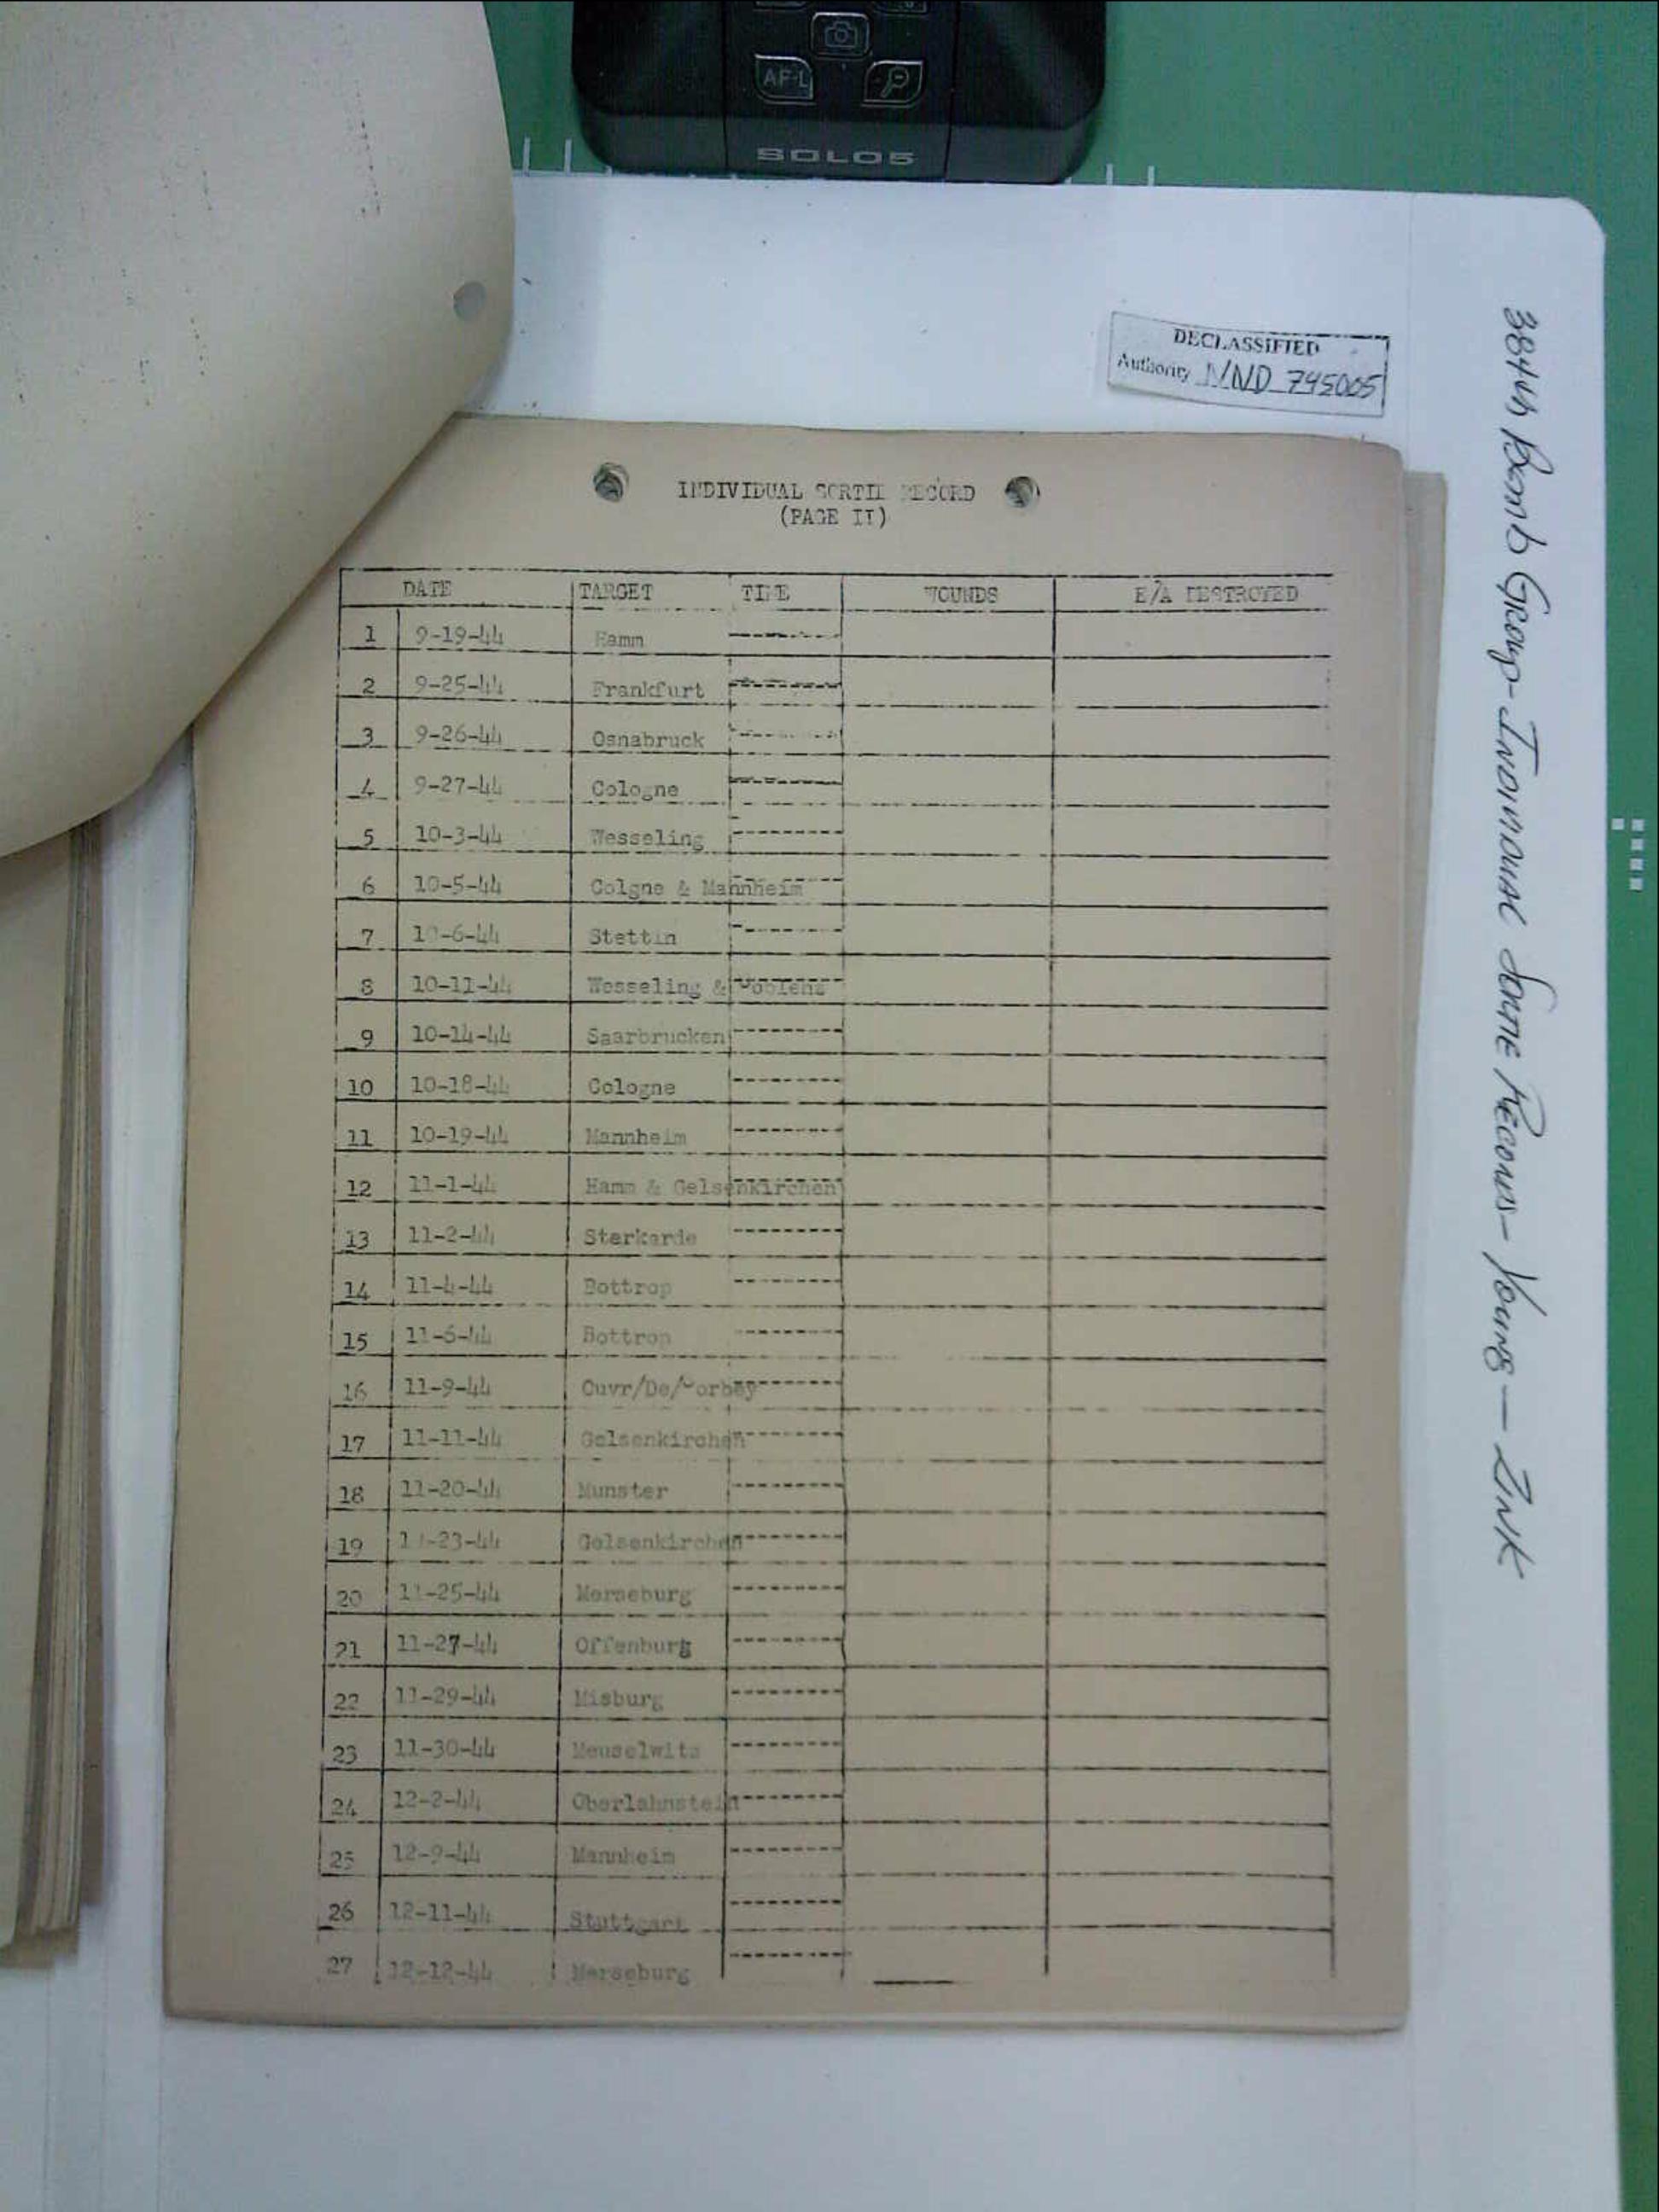 AF-L
SOLO5
DECLASSIFIED
Authority NND 745005
INDIVIDUAL SORTIE RECORD
(PAGE II)
DATE TARGET TIME WOUNDS E/A DESTROYED
1 9-19-44 Hamm
2 9-25-44 Frankfurt
3 9-26-44 Osnabruck
4 9-27-44 Cologne
5 10-3-44 Wesseling
6 10-5-44 Colgne & Mannheim
7 10-6-44 Stettin
8 10-11-44 Wesseling & Coblenz
9 10-14-44 Saarbrucken
10 10-18-44 Cologne
11 10-19-44 Mannheim
12 11-1-44 Hamm & Gelsenkirchen
13 11-2-44 Sterkarde
14 11-4-44 Bottrop
15 11-6-44 Bottrop
16 11-9-44 Ouvr/De/Vorbey
17 11-11-44 Gelsenkirchen
18 11-20-44 Munster
19 11-23-44 Gelsenkirchen
20 11-25-44 Merseburg
21 11-27-44 Offenburg
22 11-29-44 Misburg
23 11-30-44 Meuselwitz
24 12-2-44 Oberlahnstein
25 12-9-44 Mannheim
26 12-11-44 Stuttgart
27 12-12-44 Merseburg
384th Bomb Group - Individual Sortie Records - Young - Zink